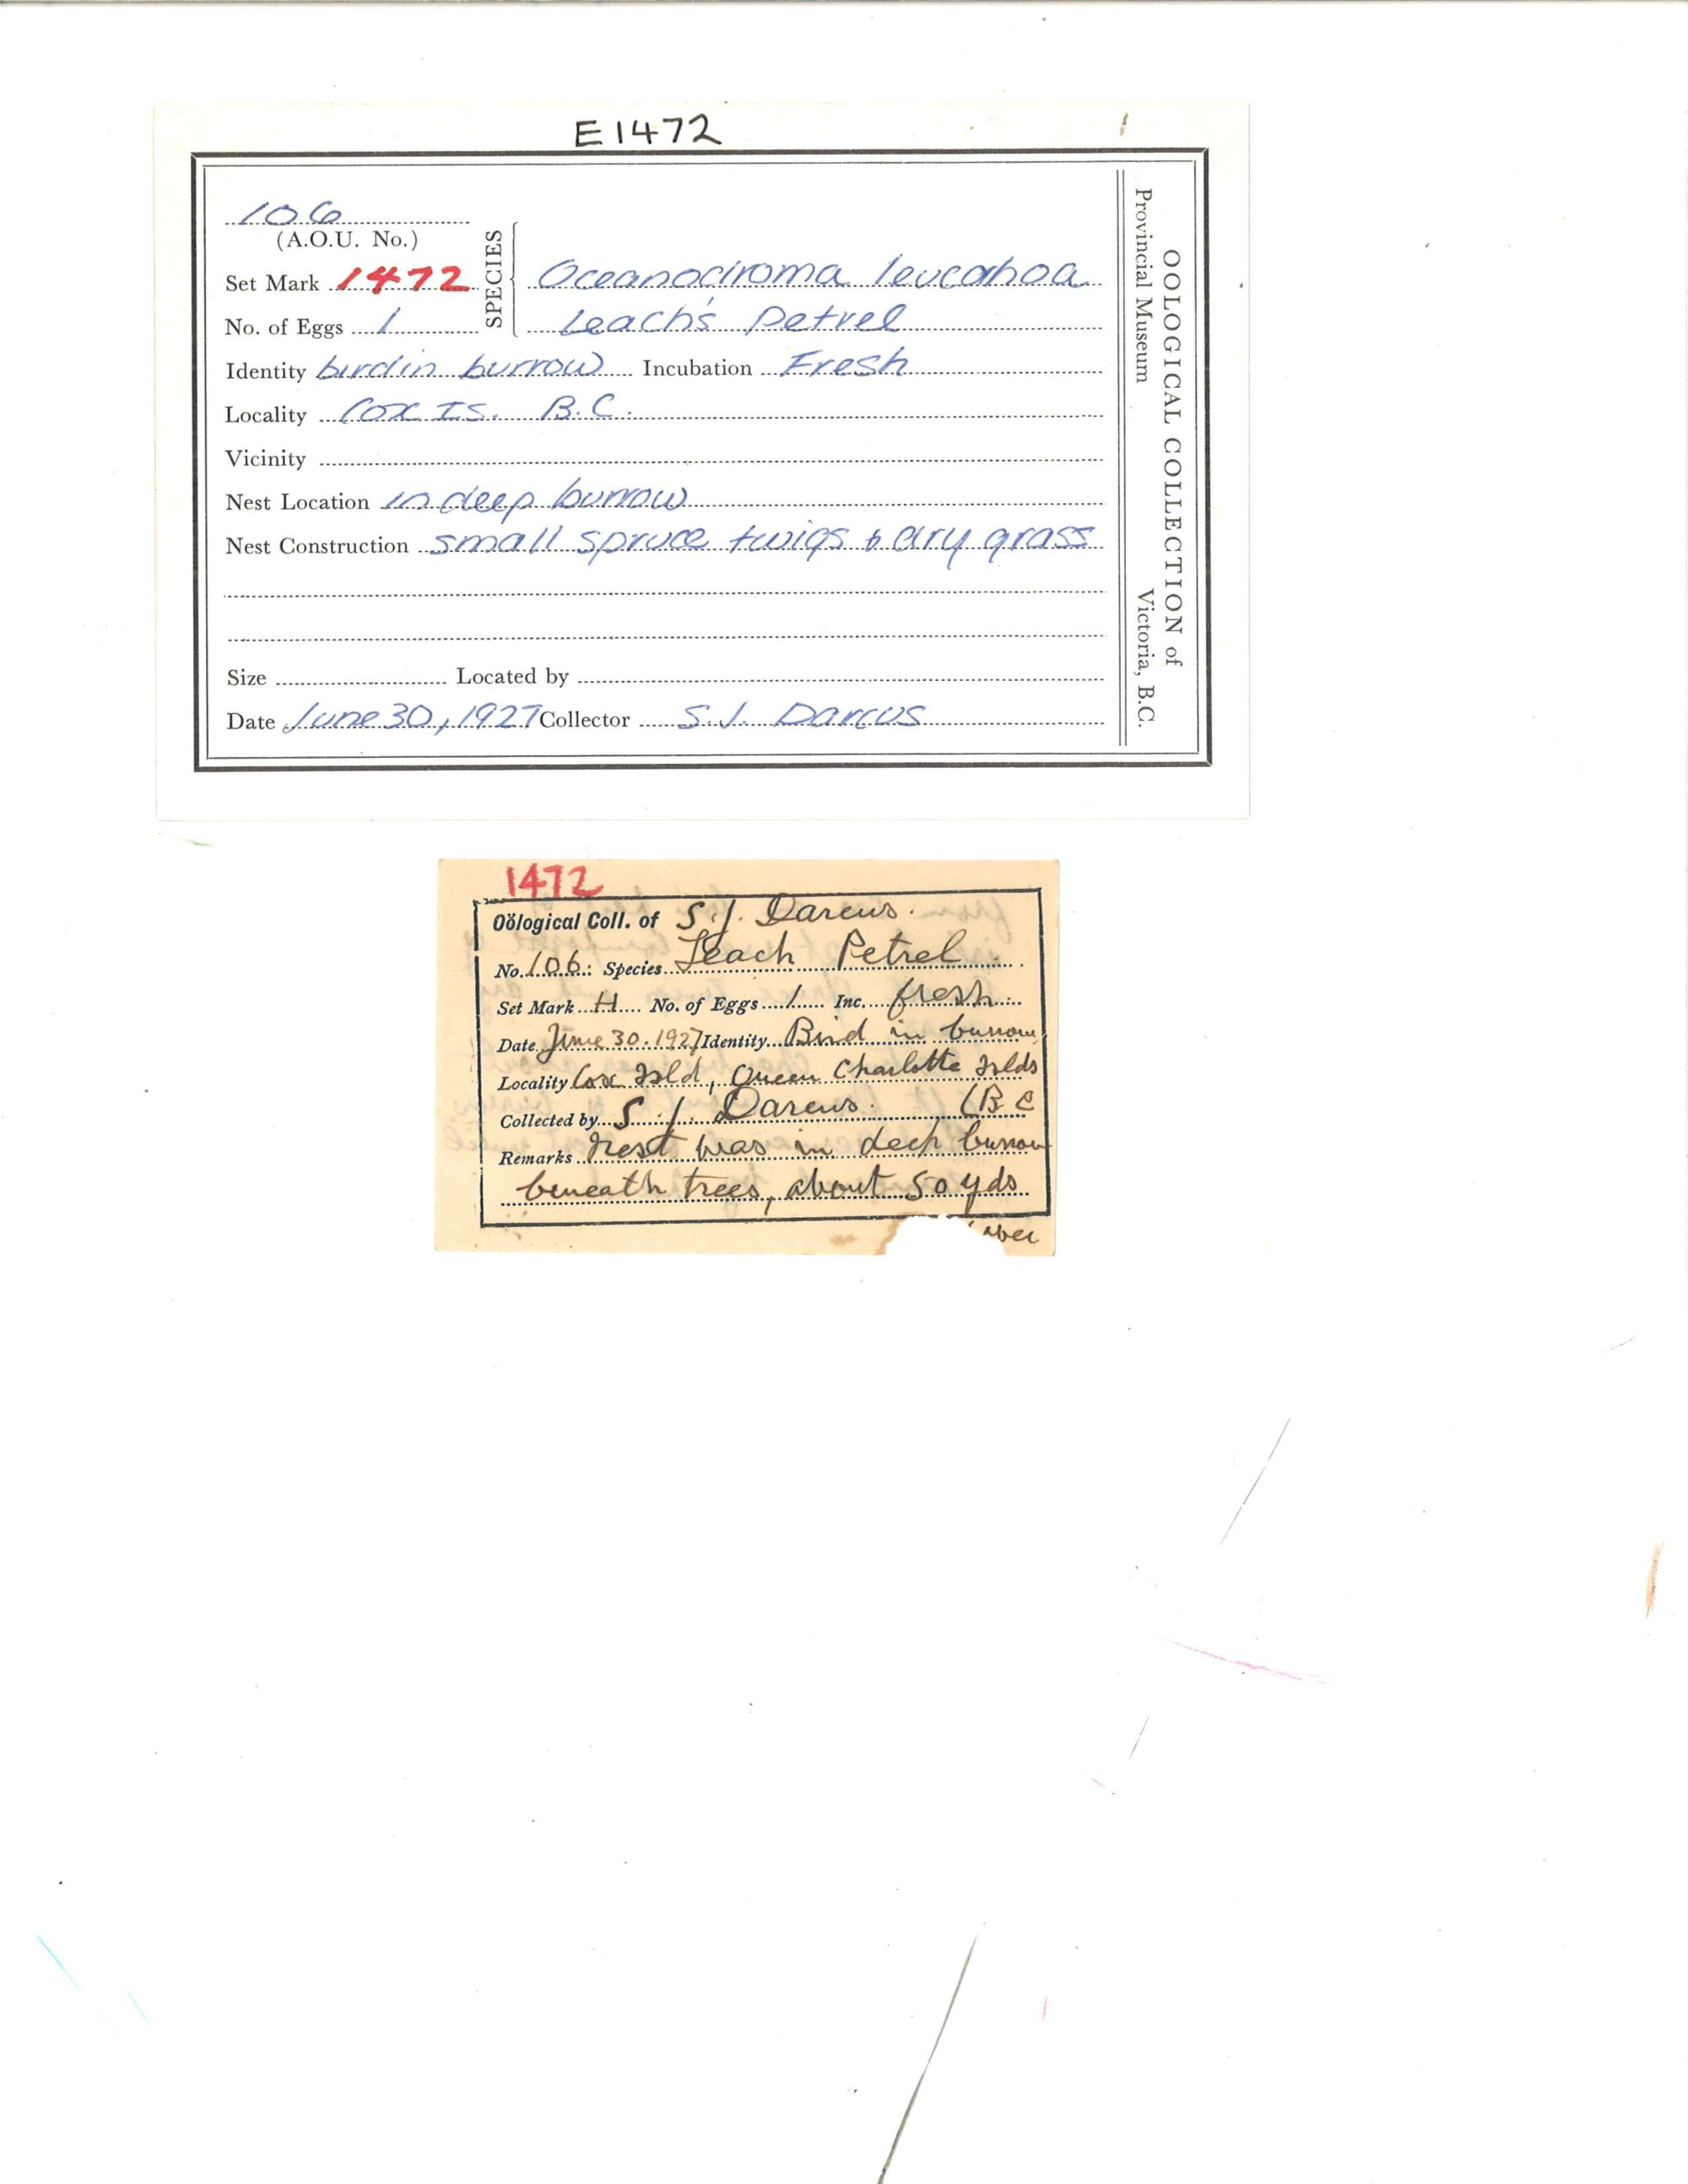 E1472
106
(A.O.U. No.)
Set Mark 1472
No. of Eggs 1
SPECIES
Oceanodroma leucahoa
Leach's Petrel
Identity bird in burrow Incubation Fresh
Locality Cox Is. B.C.
Vicinity
Nest Location in deep burrow
Nest Construction small spruce twigs & dry grass
Size Located by
Date June 30, 1927 Collector S.J. Darcus
OOLOGICAL COLLECTION of
Provincial Museum Victoria, B.C.
1472
Oölogical Coll. of S.J. Darcus.
No. 106: Species Leach Petrel
Set Mark H No. of Eggs 1 Inc. fresh
Date June 30. 1927 Identity Bird in burrow
Locality Cox Isld, Queen Charlotte Islds
Collected by S.J. Darcus. (B C
Remarks Nest was in deep burrow
beneath trees, about 50 yds